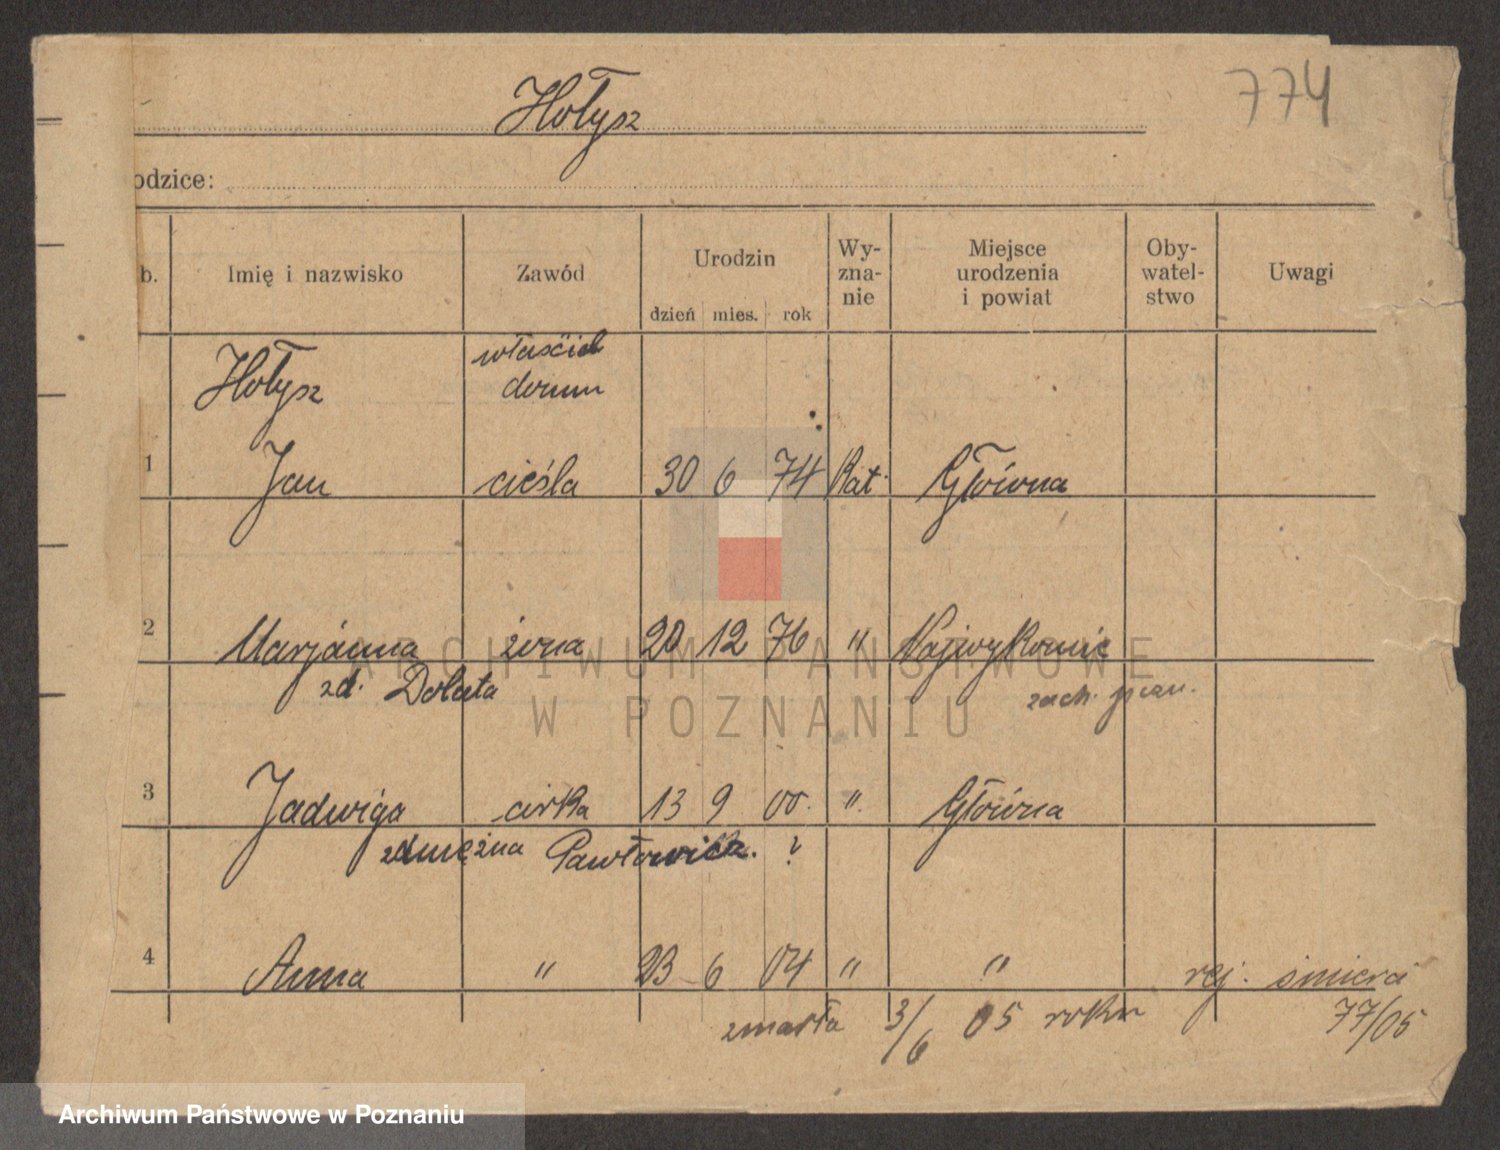 774
Hołysz
odzice:
b. Imię i nazwisko Zawód Urodzin dzień mies. rok Wy-zna-nie Miejsce urodzenia i powiat Oby-watel-stwo Uwagi
Hołysz właściciel domu
1 Jan cieśla 30 6 74 Kat. Główna
2 Marjanna żona 20 12 76 " 
zd. Dolata
3 Jadwiga córka 13 9 00. ". Główna
zamężna Pawłowicz. ?
4 Anna " 23 6 04 " " rej. śmierci
zmarła 3/6 05 roku 77/05
ARCHIWUM PAŃSTWOWE
W POZNANIU
Archiwum Państwowe w Poznaniu